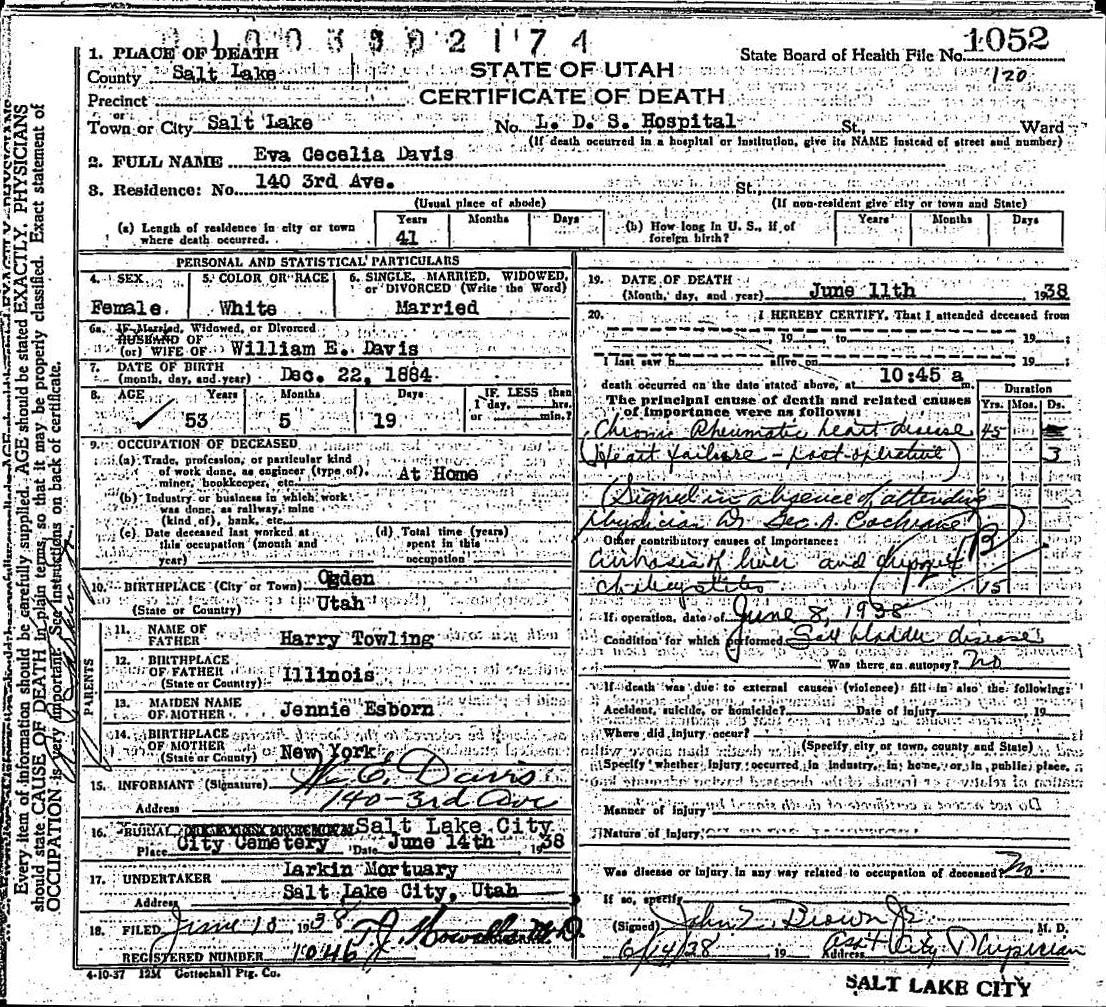 1003302174
State Board of Health File No. 1052
120
1. PLACE OF DEATH
County Salt Lake
STATE OF UTAH
CERTIFICATE OF DEATH
Precinct
or
Town or City Salt Lake No. L. D. S. Hospital St., Ward
(If death occurred in a hospital or institution, give its NAME instead of street and number)
2. FULL NAME Eva Cecelia Davis
3. Residence: No. 140 3rd Ave. St.,
(Usual place of abode) (If non-resident give city or town and State)
(a) Length of residence in city or town where death occurred. Years 41 Months Days
(b) How long in U. S., if of foreign birth? Years Months Days
PERSONAL AND STATISTICAL PARTICULARS
4. SEX Female
5. COLOR OR RACE White
6. SINGLE, MARRIED, WIDOWED, or DIVORCED (Write the Word) Married
6a. If Married, Widowed, or Divorced
HUSBAND OF
(or) WIFE OF William E. Davis
7. DATE OF BIRTH
(month, day, and year) Dec. 22, 1884
8. AGE Years 53 Months 5 Days 19 IF LESS than 1 day, hrs. or min.?
9. OCCUPATION OF DECEASED
(a) Trade, profession, or particular kind of work done, as engineer (type of), miner, bookkeeper, etc. At Home
(b) Industry or business in which work was done, as railway, mine (kind of), bank, etc.
(c) Date deceased last worked at this occupation (month and year)
(d) Total time (years) spent in this occupation
10. BIRTHPLACE (City or Town) Ogden
(State or Country) Utah
PARENTS
11. NAME OF FATHER Harry Towling
12. BIRTHPLACE OF FATHER (State or Country) Illinois
13. MAIDEN NAME OF MOTHER Jennie Esborn
14. BIRTHPLACE OF MOTHER (State or Country) New York
15. INFORMANT (Signature) W. E. Davis
Address 140-3rd Ave
16. BURIAL Salt Lake City
Place City Cemetery Date June 14th 1938
17. UNDERTAKER Larkin Mortuary
Address Salt Lake City, Utah
18. FILED June 1938 M.D.
REGISTERED NUMBER 1046
4-10-37 12M Gottschall Ptg. Co.
19. DATE OF DEATH
(Month, day, and year) June 11th 1938
20. I HEREBY CERTIFY, That I attended deceased from
19 to 19
I last saw h alive on 19
death occurred on the date stated above, at 10:45 a m.
The principal cause of death and related causes of importance were as follows: Duration Yrs. Mos. Ds.
Chronic Rheumatic heart disease 45
(Heart failure - post-operative) 3
(Signed in absence of attending
physician Dr Geo. A. Cochrane)
Other contributory causes of importance:
Cirrhosis of liver and
15
If operation, date of June 8, 1938
Condition for which performed Gall bladder disease
Was there an autopsy? No
If death was due to external causes (violence) fill in also the following:
Accident, suicide, or homicide? Date of injury 19
Where did injury occur?
(Specify city or town, county and State)
Specify whether injury occurred in industry, in home, or in public place.
Manner of injury
Nature of injury
Was disease or injury in any way related to occupation of deceased? No.
If so, specify
(Signed) John Z. Brown Jr. M. D.
6/14/38 19 Address Ass't City Physician
SALT LAKE CITY
Every item of information should be carefully supplied. AGE should be stated EXACTLY. PHYSICIANS
should state CAUSE OF DEATH in plain terms, so that it may be properly classified. Exact statement of
OCCUPATION is very important. See instructions on back of certificate.